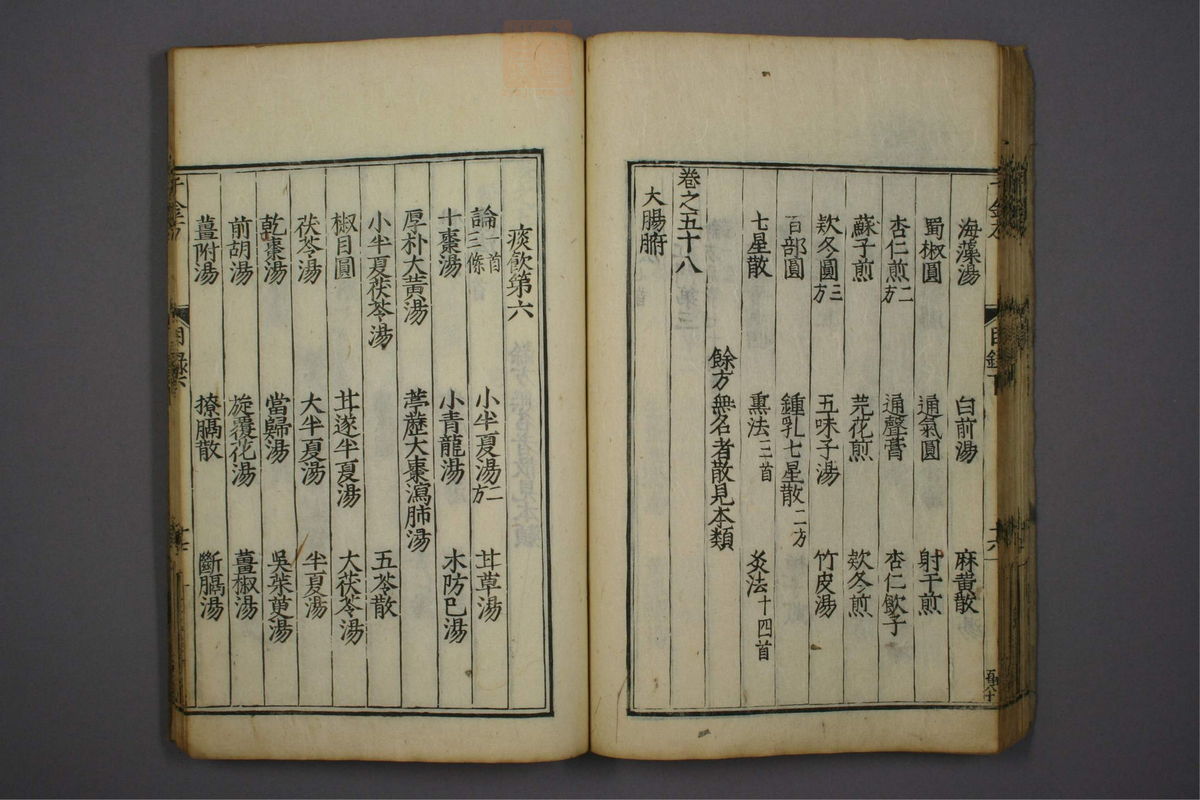 海藻湯 白前湯 麻黄散
蜀椒圓 通氣圓 射干煎
杏仁煎二方 通聲膏 杏仁飲子
蘇子煎 芫花煎 欵冬煎
欵冬圓三方 五味子湯 竹皮湯
百部圓 鍾乳七星散二方
七星散 熏法三首 灸法十四首
餘方無名者散見本類
卷之五十八
大腸腑
痰飲第六
論一首三條 小半夏湯二方 甘草湯
十棗湯 小青龍湯 木防己湯
厚朴大黄湯 葶藶大棗瀉肺湯
小半夏茯苓湯 五苓散
椒目圓 甘遂半夏湯 大茯苓湯
茯苓湯 大半夏湯 半夏湯
乾棗湯 當歸湯 吳茱萸湯
前胡湯 旋覆花湯 薑椒湯
薑附湯 撩膈散 斷膈湯
目録下